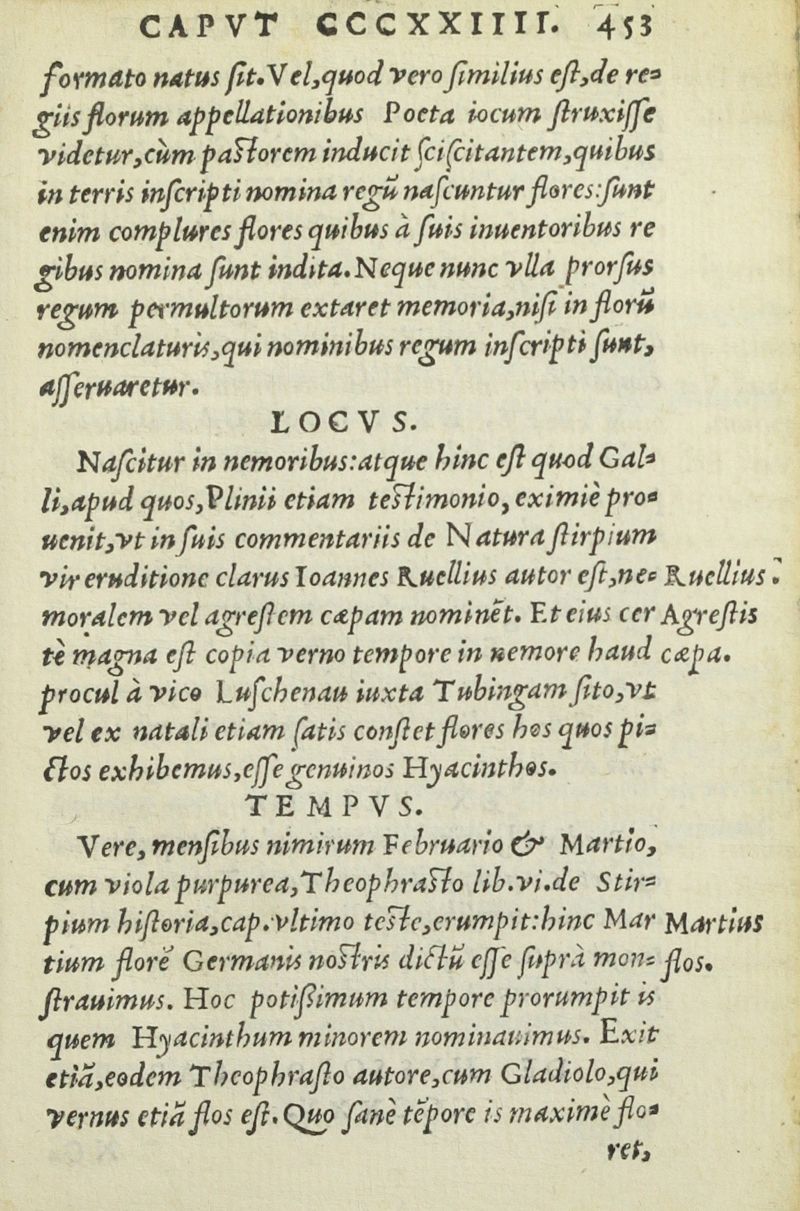 CAPVT CCCXXIIII. 453
formato natus ſit. Vel, quod vero ſimilius eſt, de re-
giis florum appellationibus Poeta iocum ſtruxiſſe
videtur, cùm paſtorem inducit ſciſcitantem, quibus
in terris inſcripti nomina regũ naſcuntur flores: ſunt
enim complures flores quibus à ſuis inuentoribus re
gibus nomina ſunt indita. Neque nunc vlla prorſus
regum permultorum extaret memoria, niſi in florũ
nomenclaturis, qui nominibus regum inſcripti ſunt,
aſſeruaretur.
LOCVS.
Naſcitur in nemoribus: atque hinc eſt quod Gal-
li, apud quos, Plinii etiam teſtimonio, eximiè pro-
uenit, vt in ſuis commentariis de Natura ſtirpium
vir eruditione clarus Ioannes Ruellius autor eſt, ne- Ruellius.
moralem vel agreſtem cæpam nominẽt. Et eius cer Agreſtis
tè magna eſt copia verno tempore in nemore haud cæpa.
procul à vico Luſchenau iuxta Tubingam ſito, vt
vel ex natali etiam ſatis conſtet flores hos quos pi-
ctos exhibemus, eſſe genuinos Hyacinthos.
TEMPVS.
Vere, menſibus nimirum Februario & Martio,
cum viola purpurea, Theophraſto lib. vi. de Stir-
pium hiſtoria, cap. vltimo teſte, erumpit: hinc Mar Martius
tium florẽ Germanis noſtris dictũ eſſe ſuprà mon- flos.
ſtrauimus. Hoc potiſsimum tempore prorumpit is
quem Hyacinthum minorem nominauimus. Exit
etiã, eodem Theophraſto autore, cum Gladiolo, qui
vernus etiã flos eſt. Quo ſanè tẽpore is maximè flo-
ret,